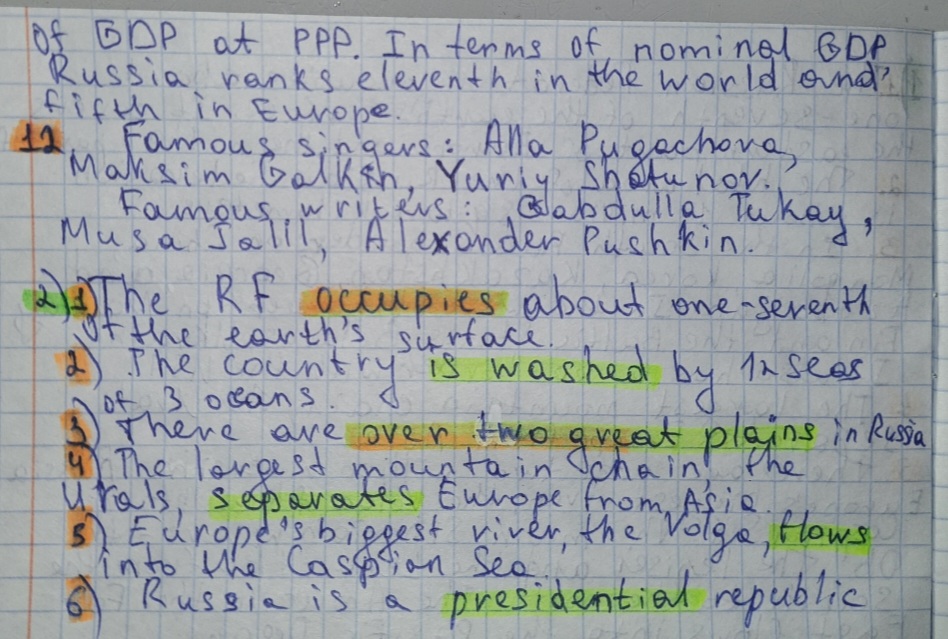 of GDP at PPP. In terms of nominal GDP
Russia ranks eleventh in the world and
fifth in Europe.
12 Famous singers: Alla Pugachova,
Maksim Galkin, Yuriy Shatunov.
Famous writers: Gabdulla Tukay,
Musa Jalil, Alexander Pushkin.
2) 1) The RF occupies about one-seventh
of the earth's surface.
2) The country is washed by 12 seas
of 3 oceans.
3) There are over two great plains in Russia
4) The largest mountain chain, the
Urals, separates Europe from Asia.
5) Europe's biggest river, the Volga, flows
into the Caspian Sea.
6) Russia is a presidential republic